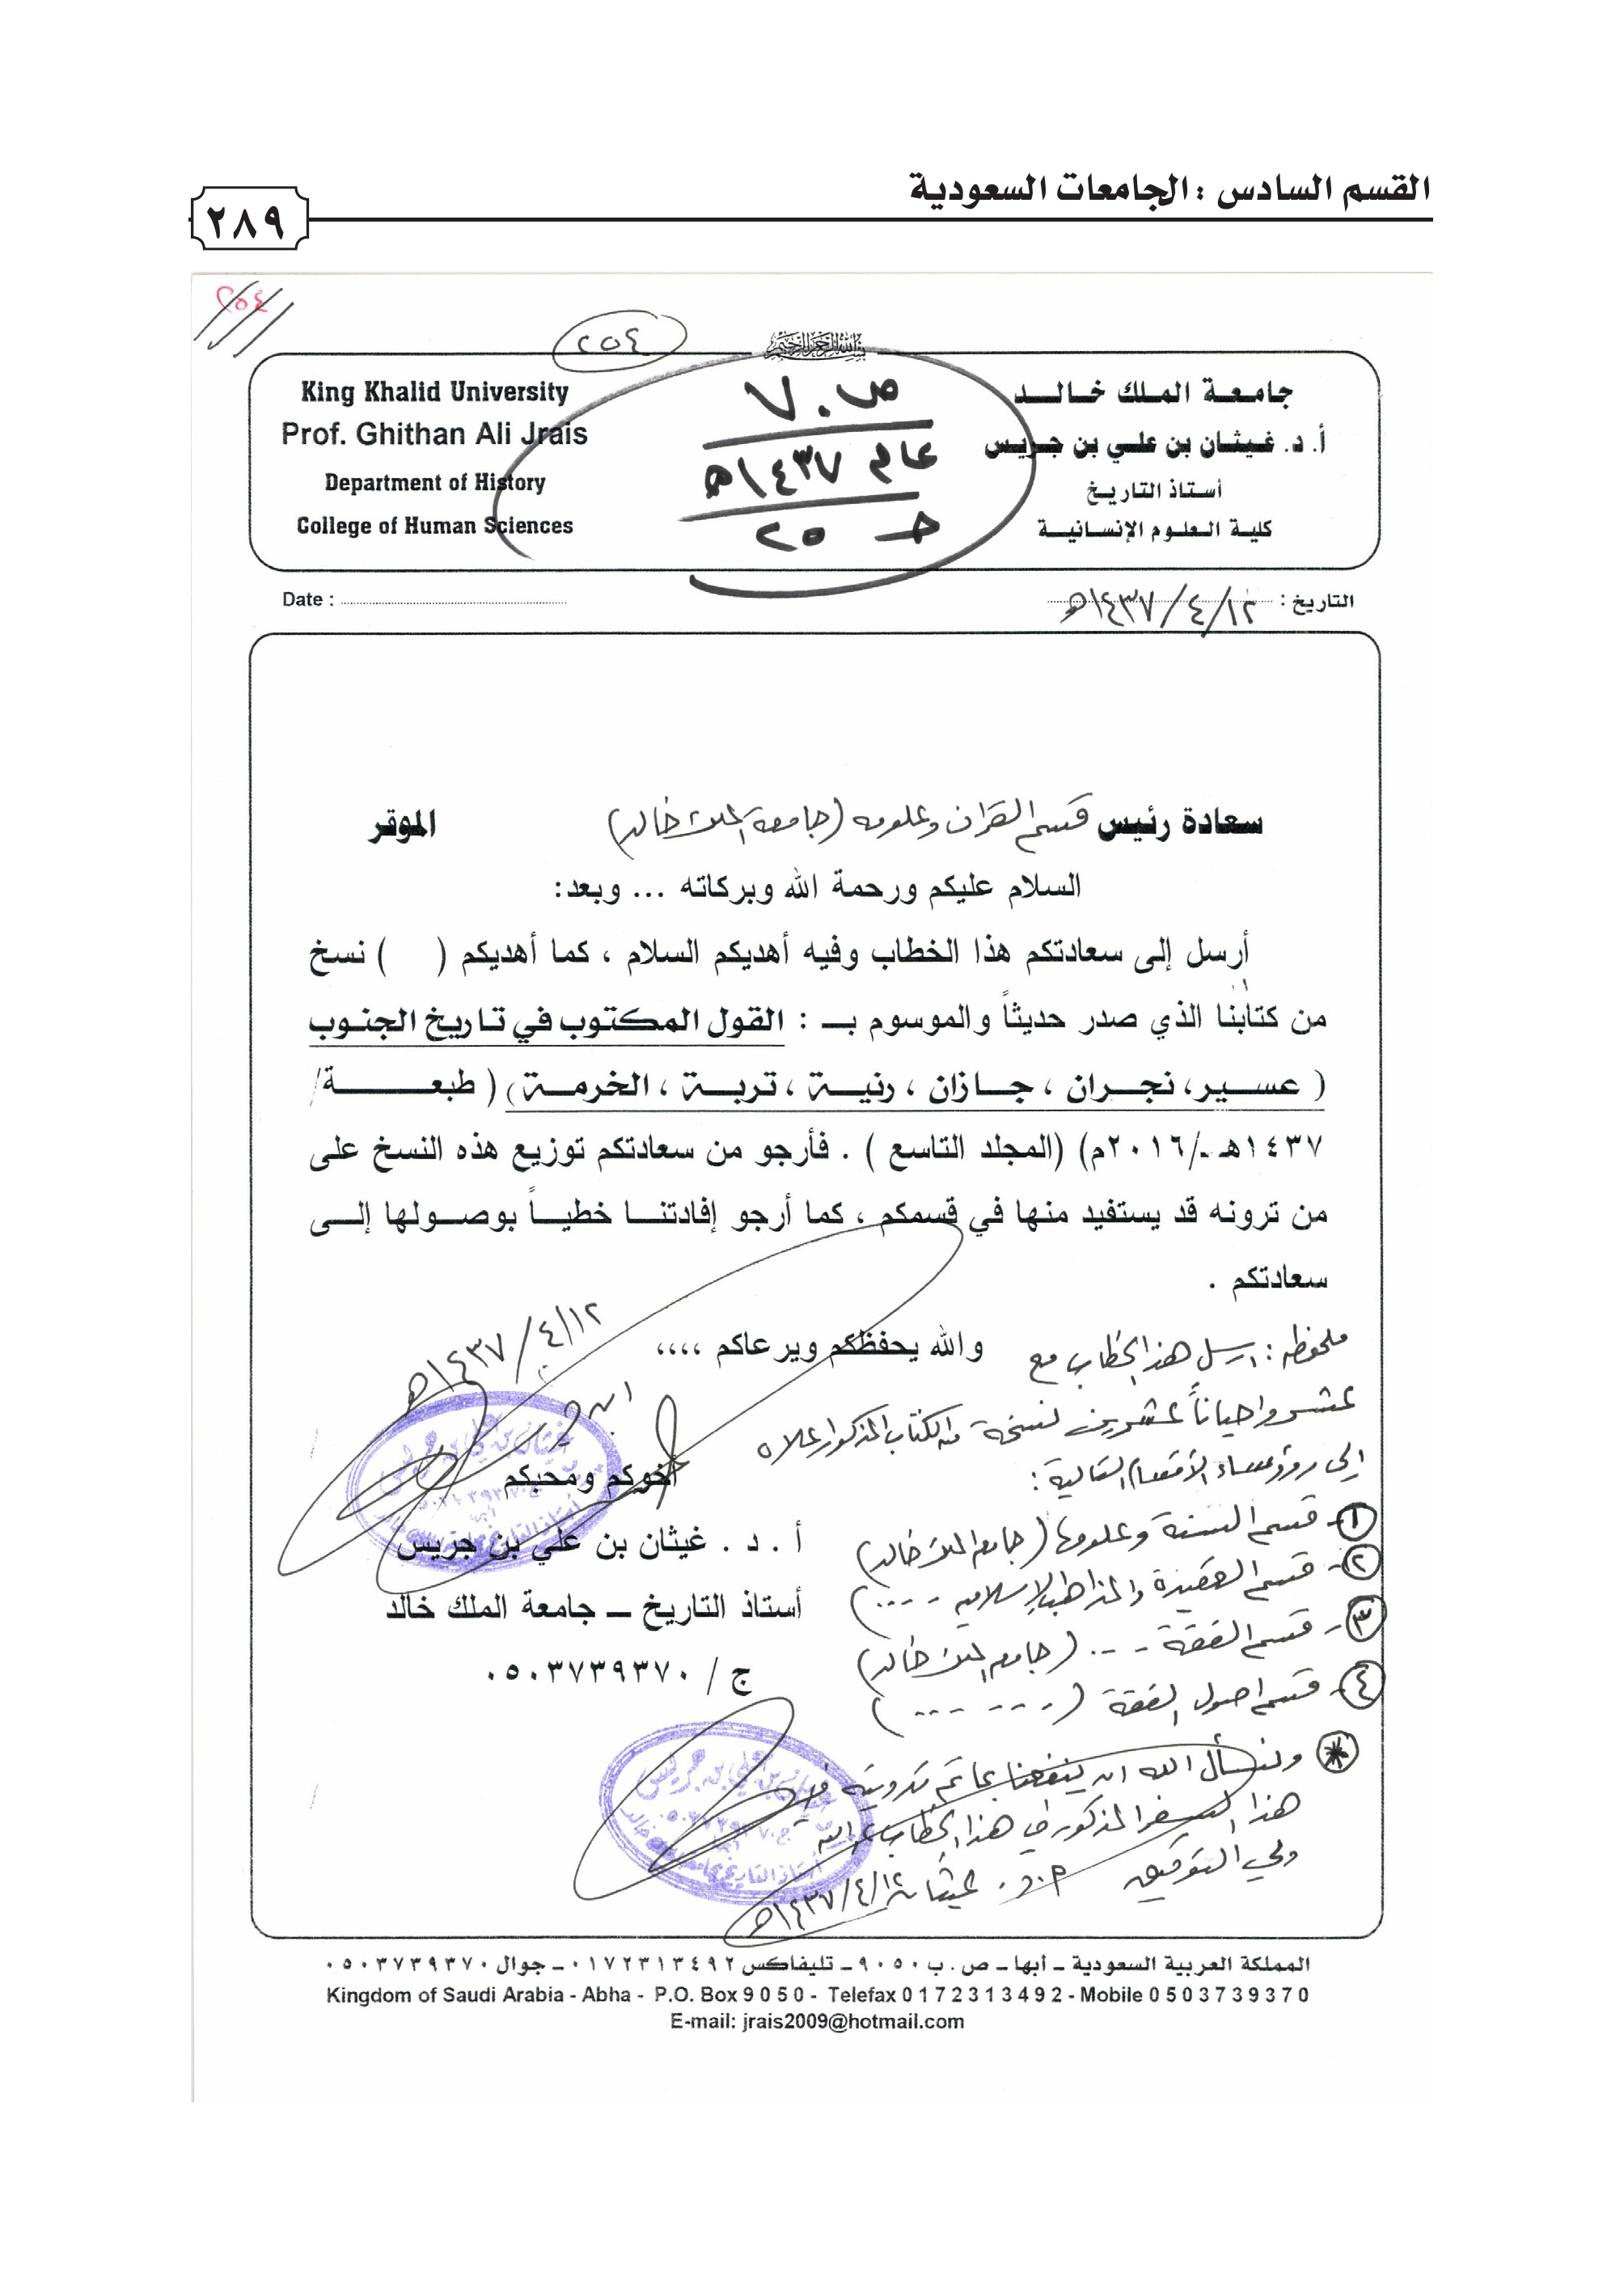 القسم السادس : الجامعات السعودية
٢٨٩
٢٥٤
٢٥٤
بسم الله الرحمن الرحيم
جامعة الملك خالد
أ. د. غيثان بن علي بن جريس
أستاذ التاريخ
كلية العلوم الإنسانية
King Khalid University
Prof. Ghithan Ali Jrais
Department of History
College of Human Sciences
ص ٧٠
عام ١٤٣٧هـ
حـ ٢٥
التاريخ : ١٢/٤/١٤٣٧هـ
Date :
سعادة رئيس قسم القرآن وعلومه (جامعة الملك خالد) الموقر
السلام عليكم ورحمة الله وبركاته ... وبعد:
أرسل إلى سعادتكم هذا الخطاب وفيه أهديكم السلام ، كما أهديكم (    ) نسخ
من كتابنا الذي صدر حديثاً والموسوم بـ : القول المكتوب في تاريخ الجنوب
( عسير، نجران ، جازان ، رنية ، تربة ، الخرمة) ( طبعة/
١٤٣٧هـ/٢٠١٦م) (المجلد التاسع ) . فأرجو من سعادتكم توزيع هذه النسخ على
من ترونه قد يستفيد منها في قسمكم ، كما أرجو إفادتنا خطياً بوصولها إلى
سعادتكم .
والله يحفظكم ويرعاكم ،،،،
١٢/٤/١٤٣٧هـ
أخوكم ومحبكم
أ . د . غيثان بن علي بن جريس
أستاذ التاريخ ــ جامعة الملك خالد
ج / ٠٥٠٣٧٣٩٣٧٠
ملحوظه : ارسل هذا الخطاب مع
عشر واحياناً عشرين نسخة من الكتاب المذكور اعلاه
الى رؤساء الأقسام التالية :
١- قسم السنة وعلومها (جامعة الملك خالد)
٢- قسم العقيدة والمذاهب الإسلاميه (....)
٣- قسم الفقة ... (جامعة الملك خالد)
٤- قسم اصول الفقة (......)
* ونسأل الله ان ينفعنا بما تم تدوينه في
هذا السفر المذكور في هذا الخطاب والله
ولي التوفيق
أ.د. غيثان ١٢/٤/١٤٣٧هـ
المملكة العربية السعودية ــ أبها ــ ص . ب ٩٠٥٠ ــ تليفاكس ٠١٧٢٣١٣٤٩٢ ــ جوال ٠٥٠٣٧٣٩٣٧٠
Kingdom of Saudi Arabia - Abha - P.O. Box 9050 - Telefax 0172313492 - Mobile 0503739370
E-mail: jrais2009@hotmail.com